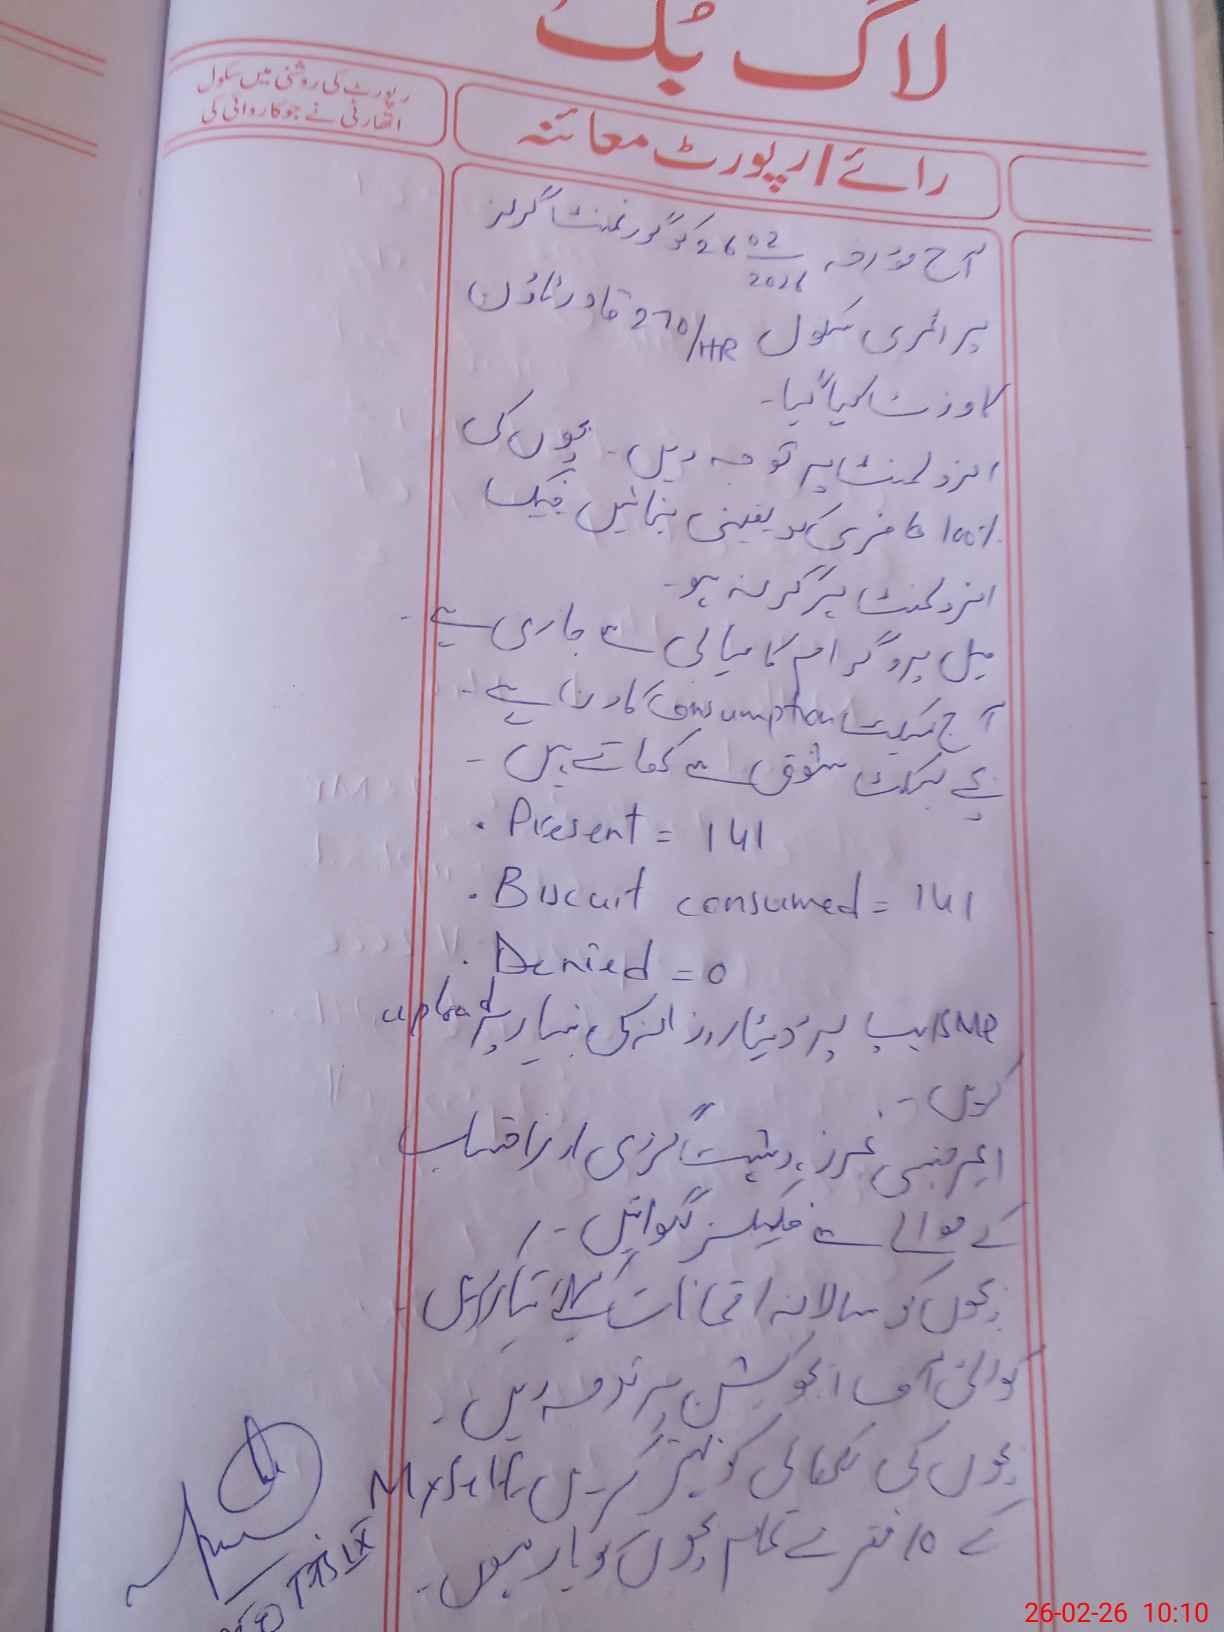 لاگ بک
رائے / رپورٹ معائنہ
رپورٹ کی روشنی میں سکول
اتھارٹی نے جو کاروائی کی
آج مورخہ 26 02/2026 کو گورنمنٹ گرلز
پرائمری سکول 270/HR قادر ٹاؤن
کا وزٹ کیا گیا۔
انرولمنٹ پر توجہ دیں۔ بچوں کی
100% حاضری کو یقینی بنائیں فیک
انرولمنٹ ہرگز نہ ہو۔
میل پروگرام کامیابی سے جاری ہے۔
آج بسکٹ Consumption کا دن ہے۔
بچے بسکٹ شوق سے کھاتے ہیں۔
. Present = 141
. Biscuit consumed = 141
. Denied = 0
ایپ پر ڈیٹا روزانہ کی بنیاد پر upload
کریں۔
ایمرجنسی نمبرز، دہشت گردی اور
کے حوالے سے فلیکسز لگوائیں۔
بچوں کو سالانہ امتحانات کیلئے تیار کریں۔
کوالٹی آف ایجوکیشن پر توجہ دیں۔
بچوں کی لکھائی کو بہتر کریں۔ Myself
کے 10 فقرے تمام بچوں کو یاد ہوں۔
26-02-26 10:10